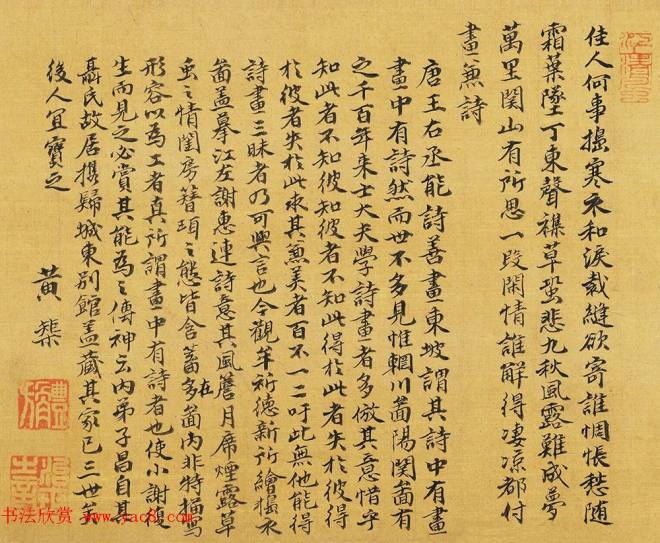 佳人何事搗寒衣和淚裁縫欲寄誰惆悵愁隨
霜葉墜丁東聲襍草蛩悲九秋風露難成夢
萬里関山有所思一段閑情誰解得凄凉都付
畫兼詩
唐王右丞能詩善畫東坡謂其詩中有畫
畫中有詩然而世不多見惟輞川啚陽関啚有
之千百年来士大夫學詩畫者多倣其意惜乎
知此者不知彼知彼者不知此得於此者失於彼得
於彼者失於此求其兼美者百不一二吁此無他能得
詩畫三昧者乃可與言也今觀牟祈德新所繪搗衣
啚盖摹江左謝惠連詩意其風簷月席煙露草
虫之情閨房簪珥之態皆含蓄多在啚内非特描寫
形容以為工者真所謂畫中有詩者也使小謝復
生而見之必賞其能為之傳神云内弟子昌自其
聶氏故居携歸城東別館盖藏其家已三世矣
後人宜寶之
黄榘
书法欣赏 www.yac8.com